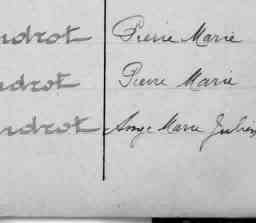 ndrot Pierre Marie
ndrot Pierre Marie
ndrot Ange Marie Julien